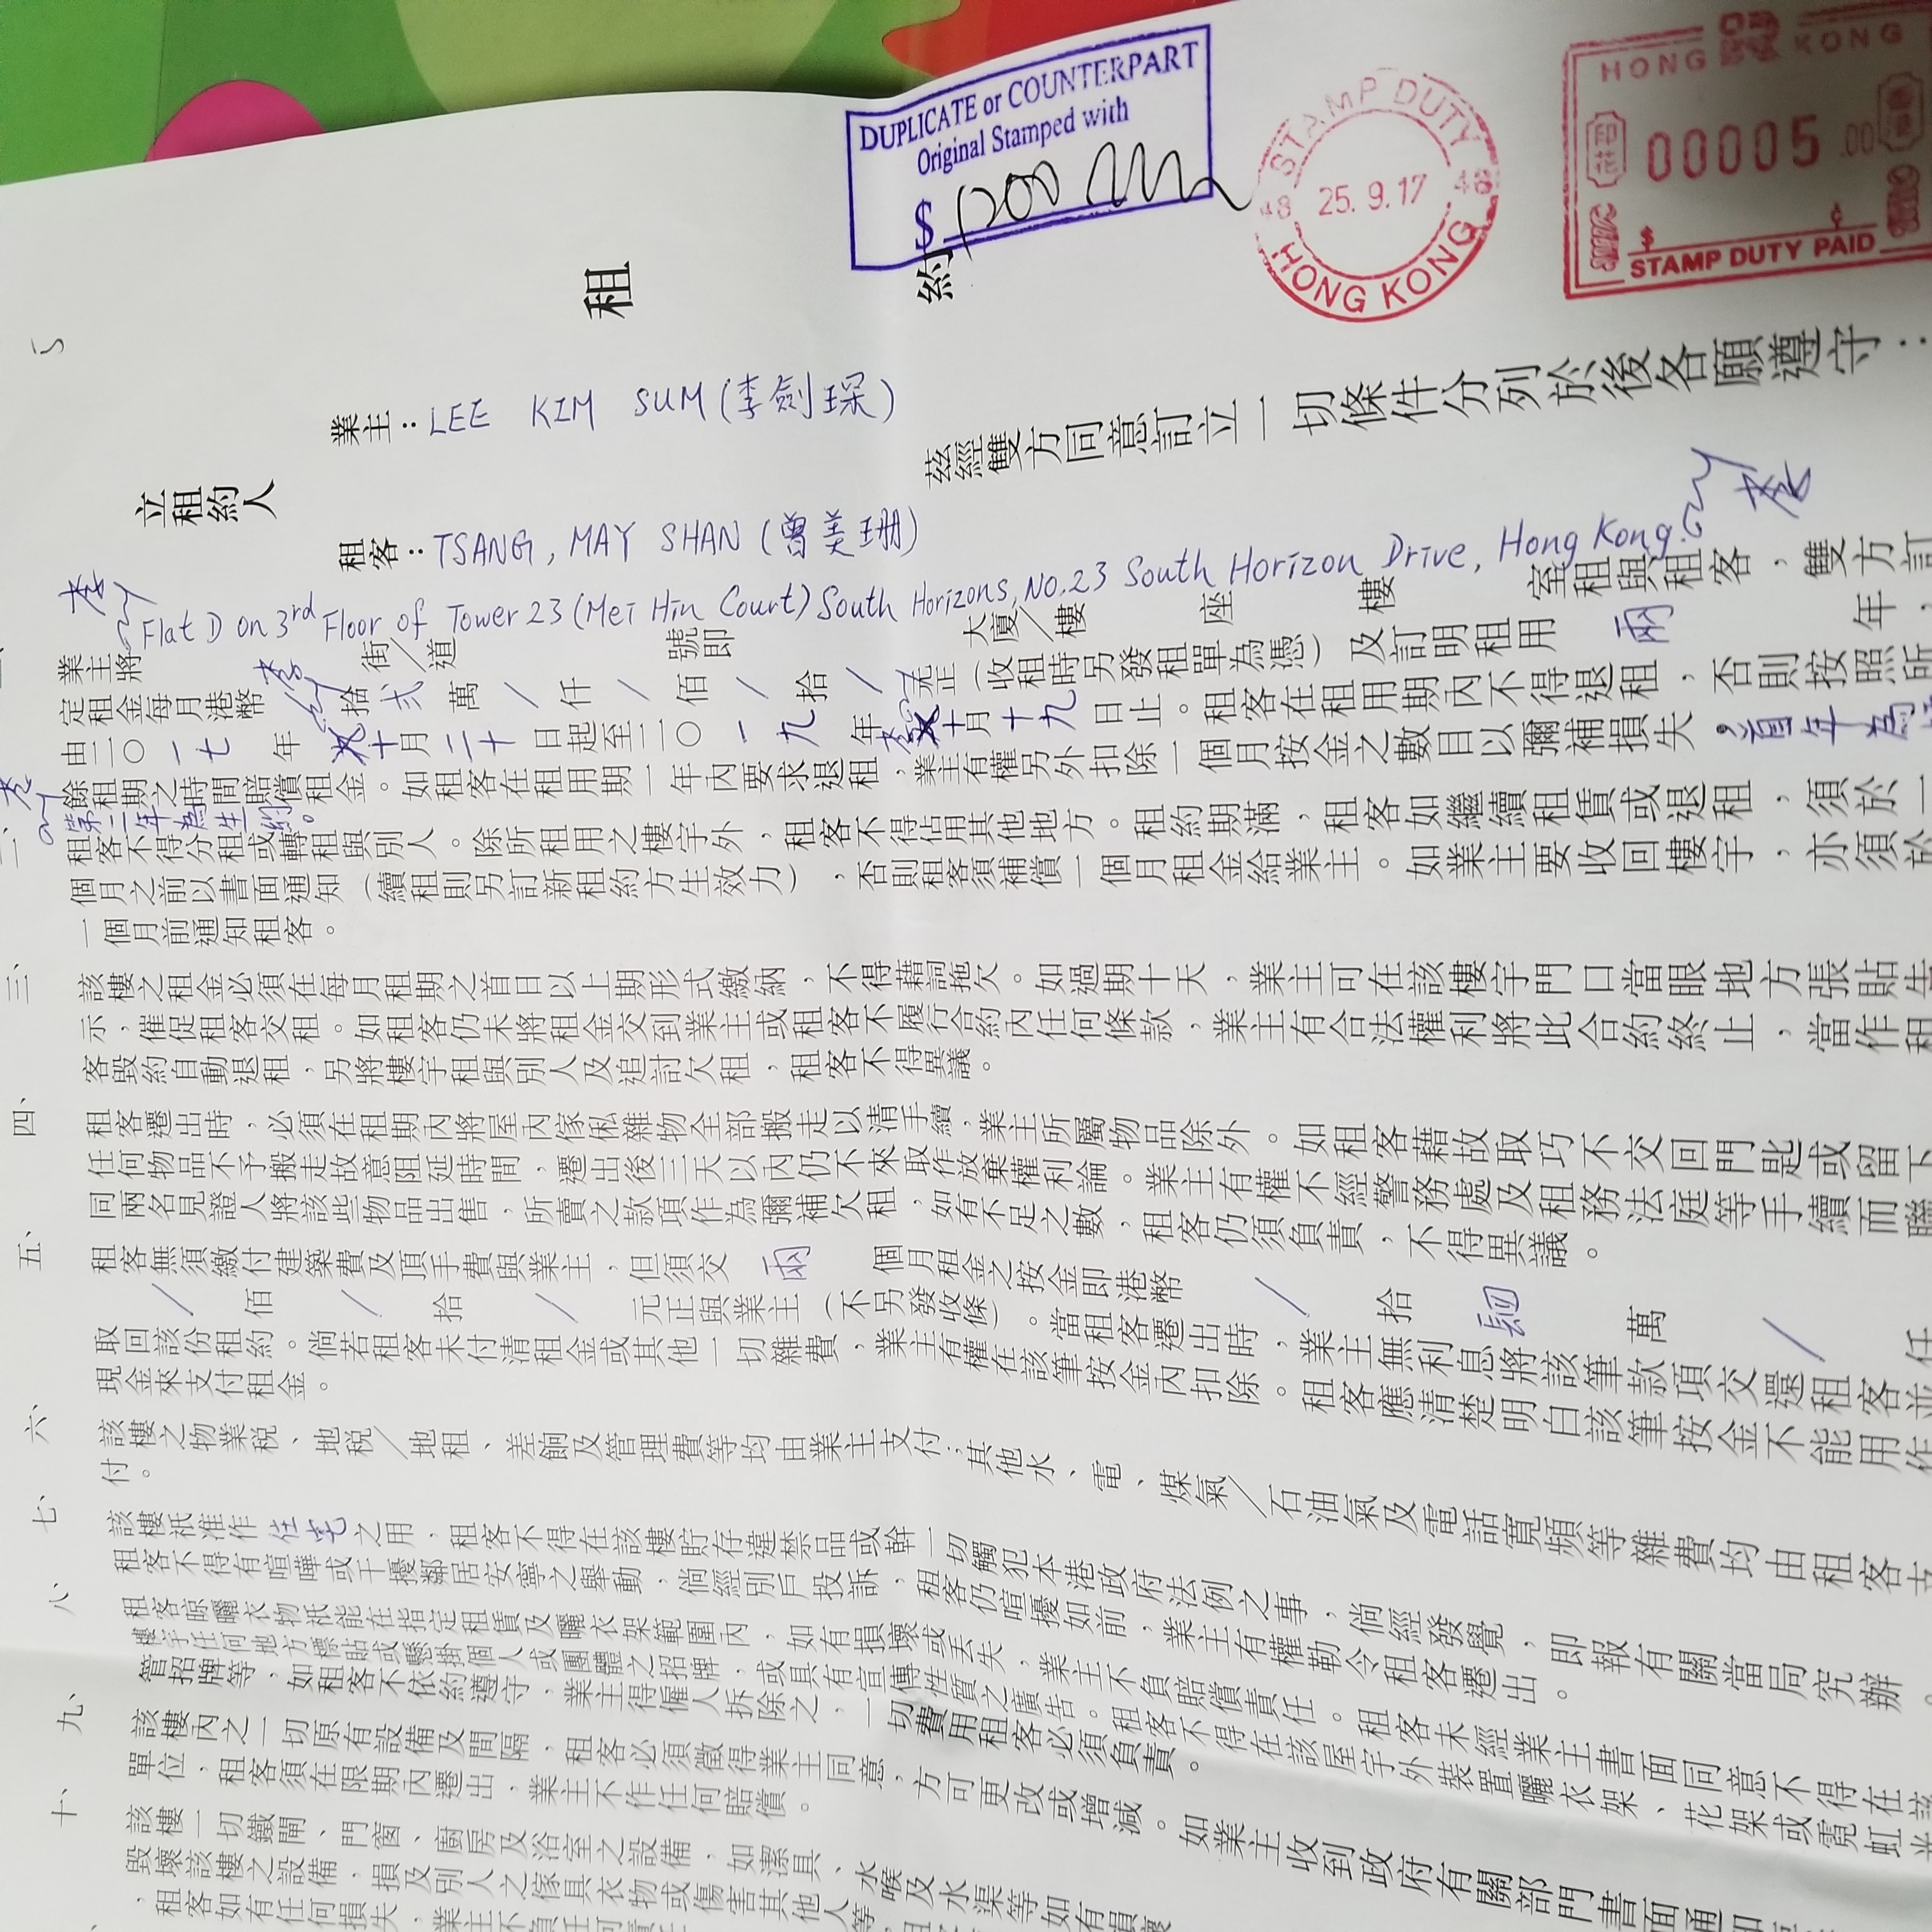 DUPLICATE or COUNTERPART
Original Stamped with
$
STAMP DUTY
48 25. 9. 17 48
HONG KONG
HONG KONG
00005.00
$ ¢
STAMP DUTY PAID
5
租 約
業主：LEE KIM SUM (李劍琛)
立租約人
茲經雙方同意訂立一切條件分列於後各願遵守：
租客：TSANG, MAY SHAN (曾美珊)
Flat D on 3rd Floor of Tower 23 (Mei Hin Court) South Horizons, No.23 South Horizon Drive, Hong Kong.
業主將 街／道 號即 大廈／樓 座 樓 室租與租客，雙方訂
定租金每月港幣 拾 弍 萬 / 仟 / 佰 / 拾 / 元正（收租時另發租單為憑）及訂明租用 兩 年，
由二〇一七 年 十月 二十 日起至二〇一九 年 十月十九 日止。租客在租用期內不得退租，否則按照所
餘租期之時間賠償租金。如租客在租用期一年內要求退租，業主有權另外扣除一個月按金之數目以彌補損失，首年為
第二年為生約。
二、 租客不得分租或轉租與別人。除所租用之樓宇外，租客不得佔用其他地方。租約期滿，租客如繼續租賃或退租，須於一
個月之前以書面通知（續租則另訂新租約方生效力），否則租客須補償一個月租金給業主。如業主要收回樓宇，亦須於
一個月前通知租客。
三、 該樓之租金必須在每月租期之首日以上期形式繳納，不得藉詞拖欠。如過期十天，業主可在該樓宇門口當眼地方張貼告
示，催促租客交租。如租客仍未將租金交到業主或租客不履行合約內任何條款，業主有合法權利將此合約終止，當作租
客毀約自動退租，另將樓宇租與別人及追討欠租，租客不得異議。
四、 租客遷出時，必須在租期內將屋內傢俬雜物全部搬走以清手續，業主所屬物品除外。如租客藉故取巧不交回門匙或留下
任何物品不予搬走故意阻延時間，遷出後三天以內仍不來取作放棄權利論。業主有權不經警務處及租務法庭等手續而聯
同兩名見證人將該些物品出售，所賣之款項作為彌補欠租，如有不足之數，租客仍須負責，不得異議。
五、 租客無須繳付建築費及頂手費與業主，但須交 兩 個月租金之按金即港幣 / 拾 肆 萬 / 仟
/ 佰 / 拾 / 元正與業主（不另發收條）。當租客遷出時，業主無利息將該筆款項交還租客並
取回該份租約。倘若租客未付清租金或其他一切雜費，業主有權在該筆按金內扣除。租客應清楚明白該筆按金不能用作
現金來支付租金。
六、 該樓之物業稅、地稅／地租、差餉及管理費等均由業主支付；其他水、電、煤氣／石油氣及電話寬頻等雜費均由租客支
付。
七、 該樓祇准作 住宅 之用，租客不得在該樓貯存違禁品或幹一切觸犯本港政府法例之事，倘經發覺，即報有關當局究辦。
租客不得有喧嘩或干擾鄰居安寧之舉動，倘經別戶投訴，租客仍喧擾如前，業主有權勒令租客遷出。
八、 租客晾曬衣物祇能在指定租賃及曬衣架範圍內，如有損壞或丟失，業主不負賠償責任。租客未經業主書面同意不得在該
樓宇任何地方標貼或懸掛個人或團體之招牌，或具有宣傳性質之廣告。租客不得在該屋宇外裝置曬衣架、花架或霓虹光
管招牌等，如租客不依約遵守，業主得僱人拆除之，一切費用租客必須負責。
九、 該樓內之一切原有設備及間隔，租客必須徵得業主同意，方可更改或增減。如業主收到政府有關部門書面通知
單位，租客須在限期內遷出，業主不作任何賠償。
十、 該樓一切鐵閘、門窗、廚房及浴室之設備，如潔具、水喉及水渠等如有損壞
毀壞該樓之設備，損及別人之傢具衣物或傷害其他人等，
，租客如有任何損失，業主不負任何責任